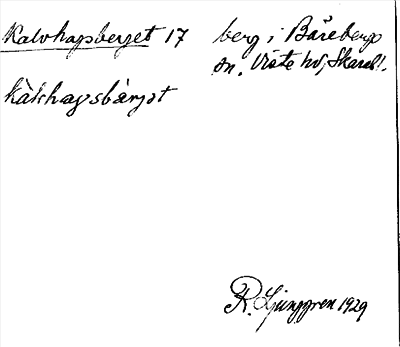 Kalvhagsberget 17
berg i Bäreberg
sn. Viste hd, Skarab.l.
kàlvhagsbärjət
R. Ljunggren 1929